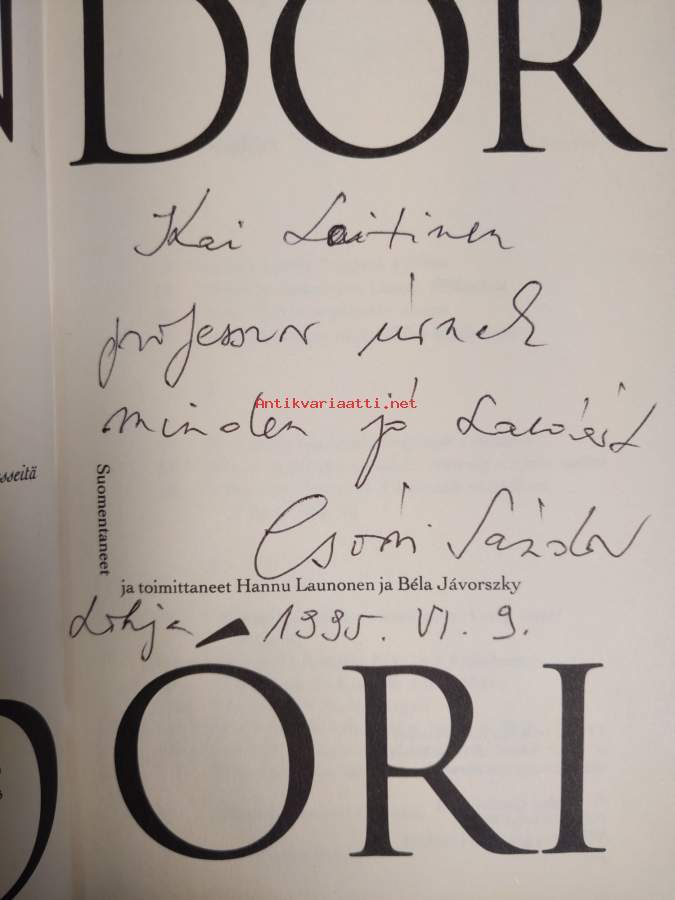 DOR
Kai Laitinen
professzor úrnak
minden jó
Antikvariaatti.net
sseitä
Suomentaneet
Csoóri Sándor
ja toimittaneet Hannu Launonen ja Béla Jávorszky
Lohja 1995. VI. 9.
ÓRI